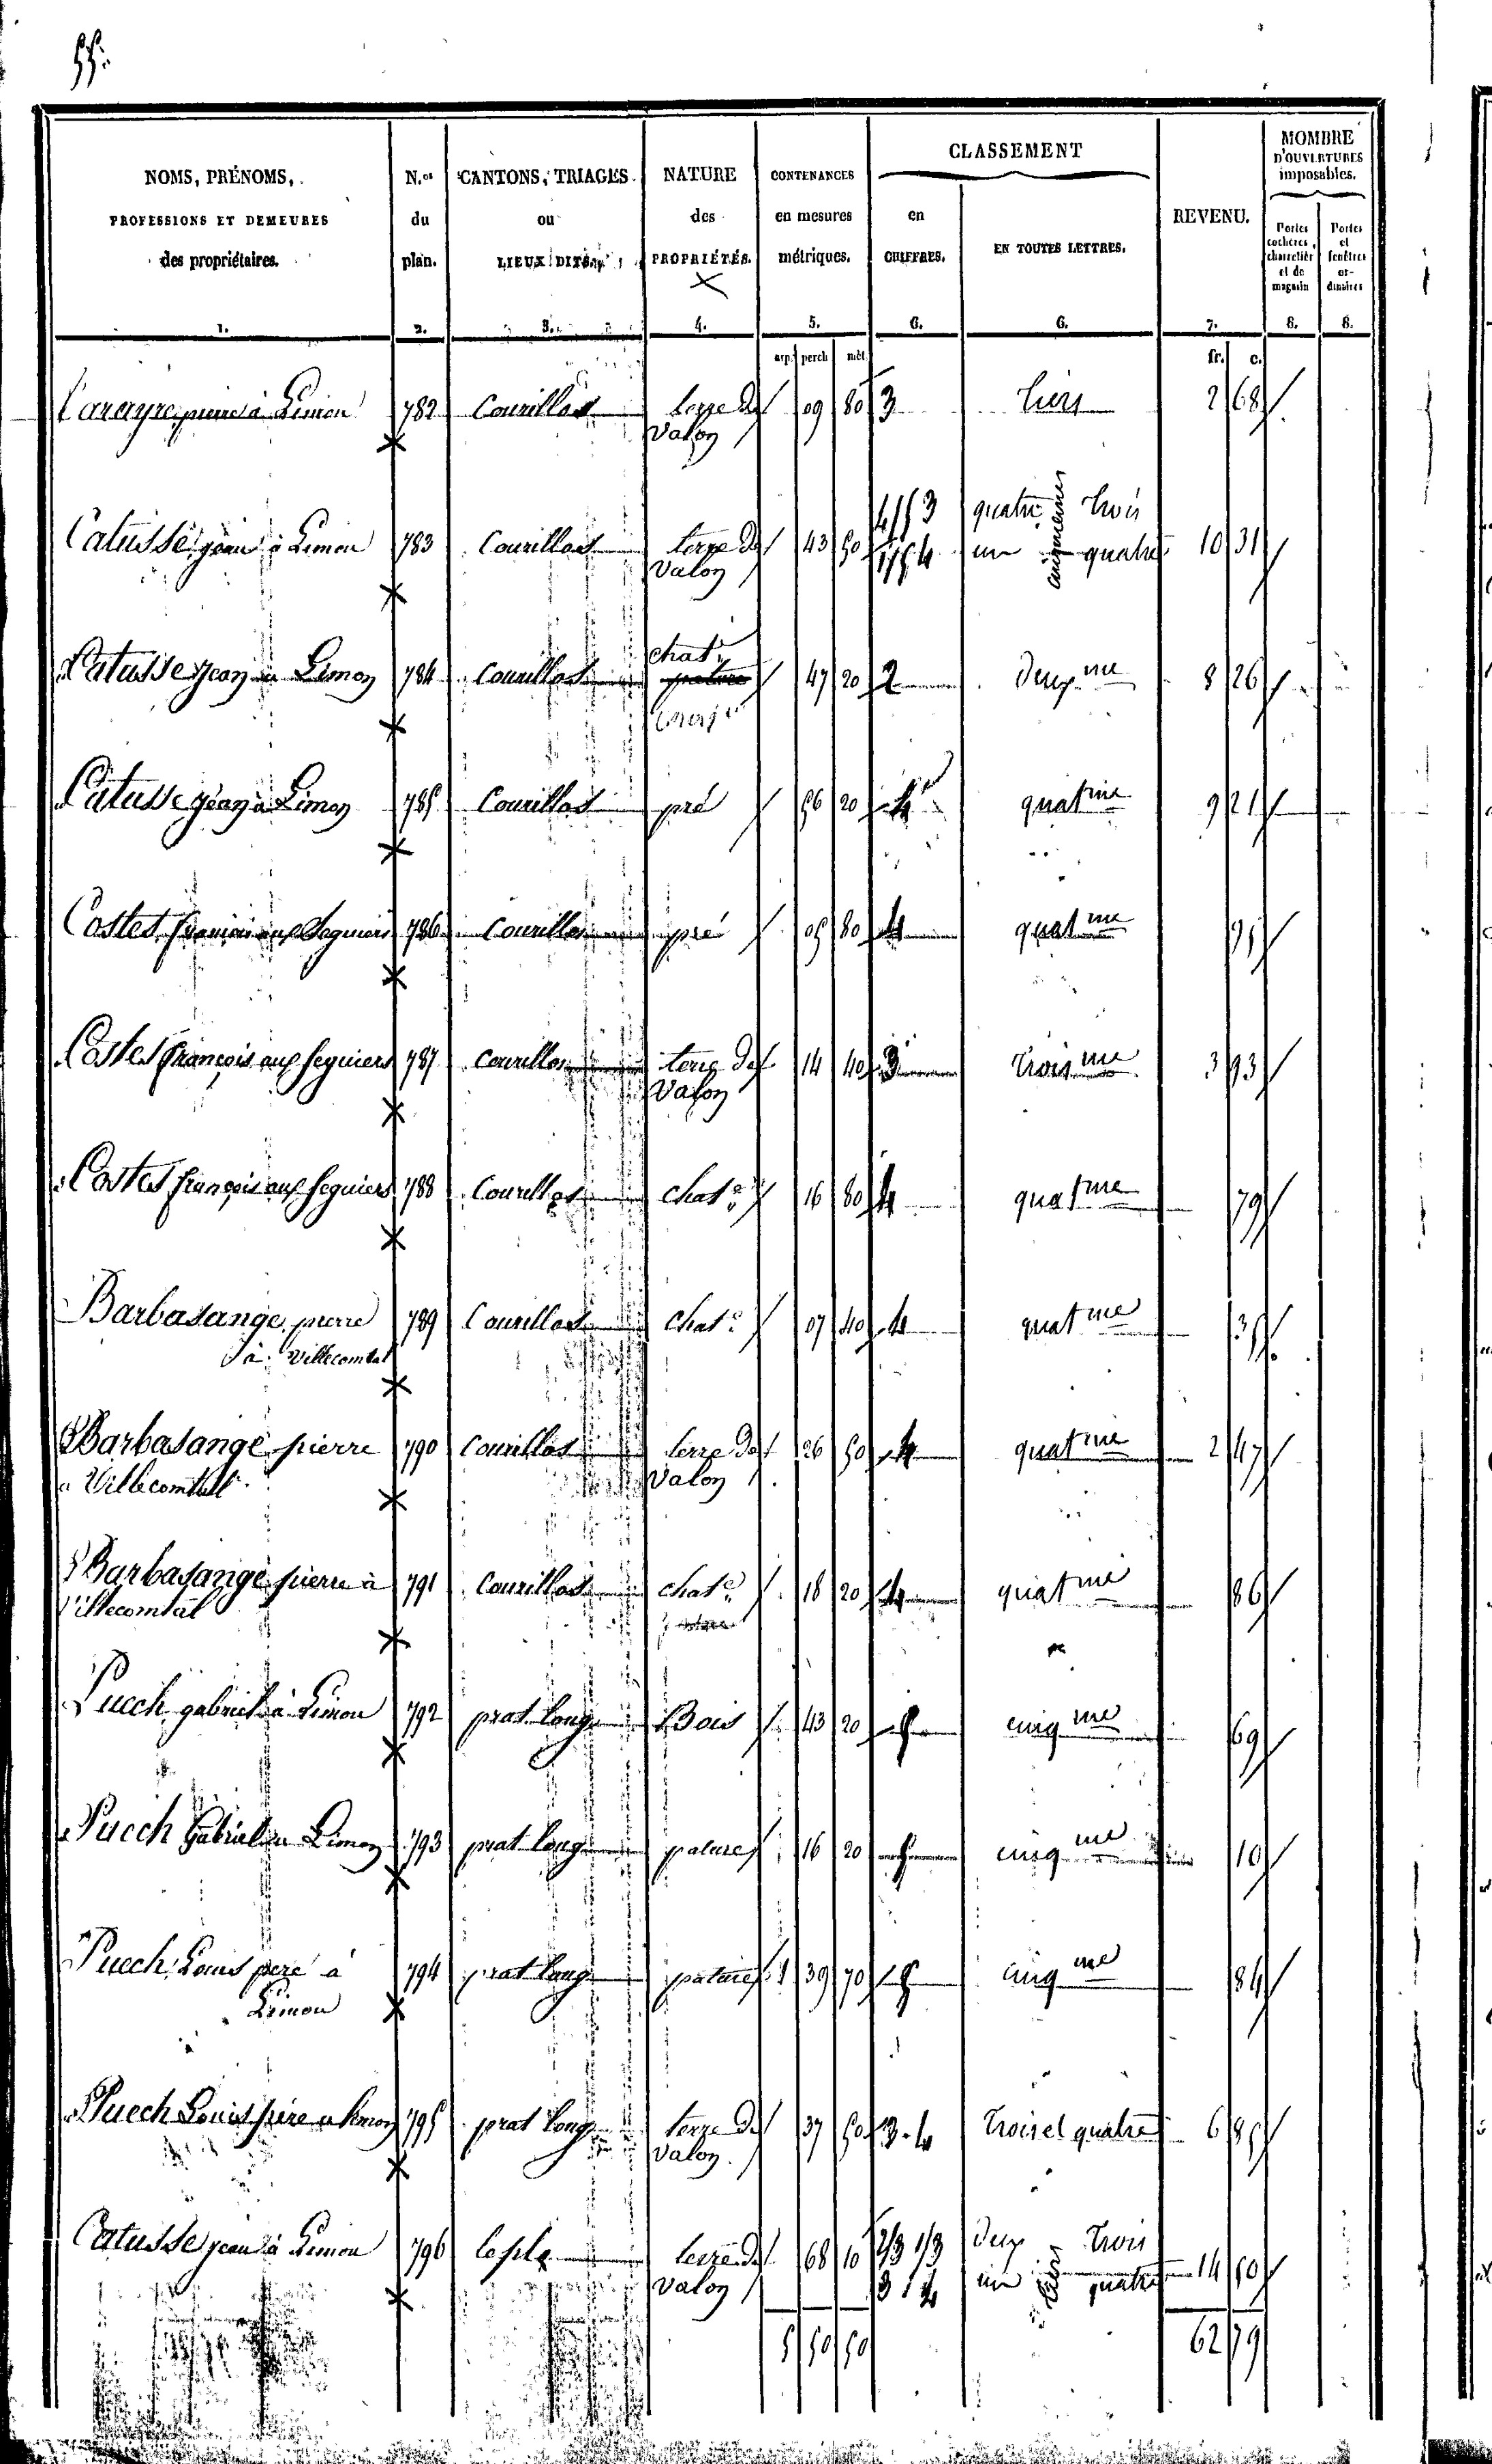 55.
NOMS, PRÉNOMS,
PROFESSIONS ET DEMEURES
des propriétaires.
1.
N.os
du
plan.
2.
CANTONS, TRIAGES
ou
LIEUX DITS.
3.
NATURE
des
PROPRIÉTÉS.
4.
CONTENANCES
en mesures
métriques.
5.
CLASSEMENT
en
CHIFFRES.
6.
EN TOUTES LETTRES.
6.
REVENU.
7.
MOMBRE
D'OUVERTURES
imposables.
Portes cochères, charretièr et de magasin
8.
Portes et fenêtres or-dinaires
8.
arp. perch mèt. fr. c.
pierre à Limon 782 Courillas terre de Valon 09 80 3 tiers 2 68
Catusse jean à Limon 783 Courillas terre de Valon 43 50 4/5 3 1/5 4 quatre trois un cinquiemes quatre 10 31
Catusse jean a Limon 784 Courillas chat. pature 47 20 2 deux me 8 26
Catusse jean a Limon 785 Courillas pré 56 20 4 quat me 9 21
Costes françois aux Seguiers 786 Courillas pré 05 80 4 quat me 95
Costes françois aux Seguiers 787 Courillas terre de Valon 14 40 3 trois me 3 93
Costes françois aux Seguiers 788 Courillas chat. 16 80 4 quat me 79
Barbasange pierre à Villecomtal 789 Courillas chat. 07 40 4 quat me 35
Barbasange pierre a Villecomtal 790 Courillas terre de Valon 26 50 4 quat me 2 47
Barbasange pierre à Villecomtal 791 Courillas chat. 18 20 4 quat me 86
Puech gabriel à Limon 792 prat long Bois 43 20 5 cinq me 69
Puech Gabriel a Limon 793 prat long pature 16 20 5 cinq me 10
Puech Louis pere à Limon 794 prat long pature 1 39 70 5 cinq me 84
Puech Louis père a Limon 795 prat long terre de Valon 37 50 3. 4 trois et quatre 6 85
Catusse jean à Limon 796 terre de Valon 68 10 2/3 1/3 3 4 deux trois un tiers quatre 14 50
5 50 50 62 79